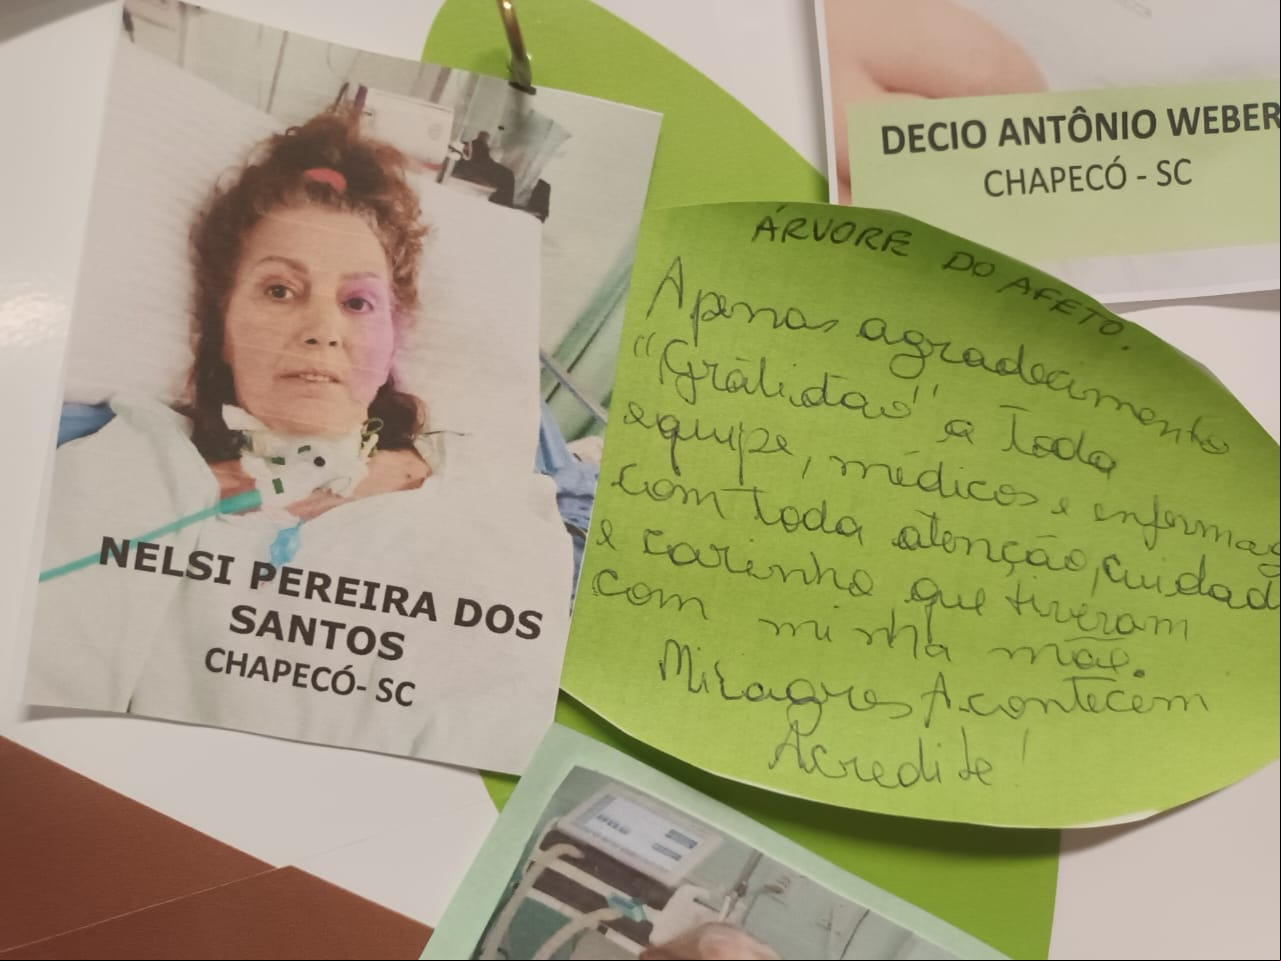 NELSI PEREIRA DOS
SANTOS
CHAPECÓ- SC
DECIO ANTÔNIO WEBER
CHAPECÓ - SC
ÁRVORE DO AFETO.
Apenas agradecimento
"Grátidão" a toda
equipe, médicos e enfermag
com toda atenção, cuidad
e carinho que tiveram
com minha mãe.
Milagres Acontecem
Acredite!